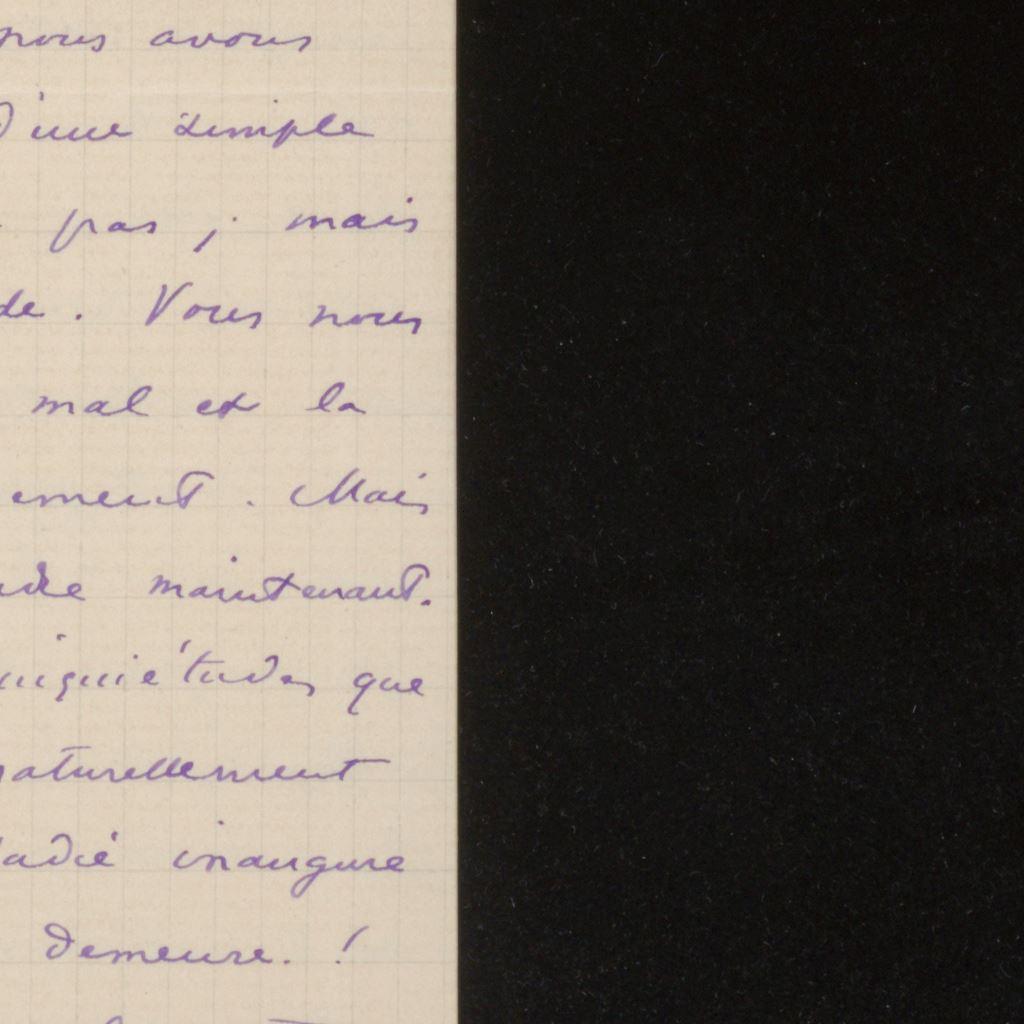 nous avons
d'une simple
pas ; mais
de. Vous nous
mal et la
ement. Mais
maintenant.
inquiétudes que
naturellement
inaugure
demeure. !